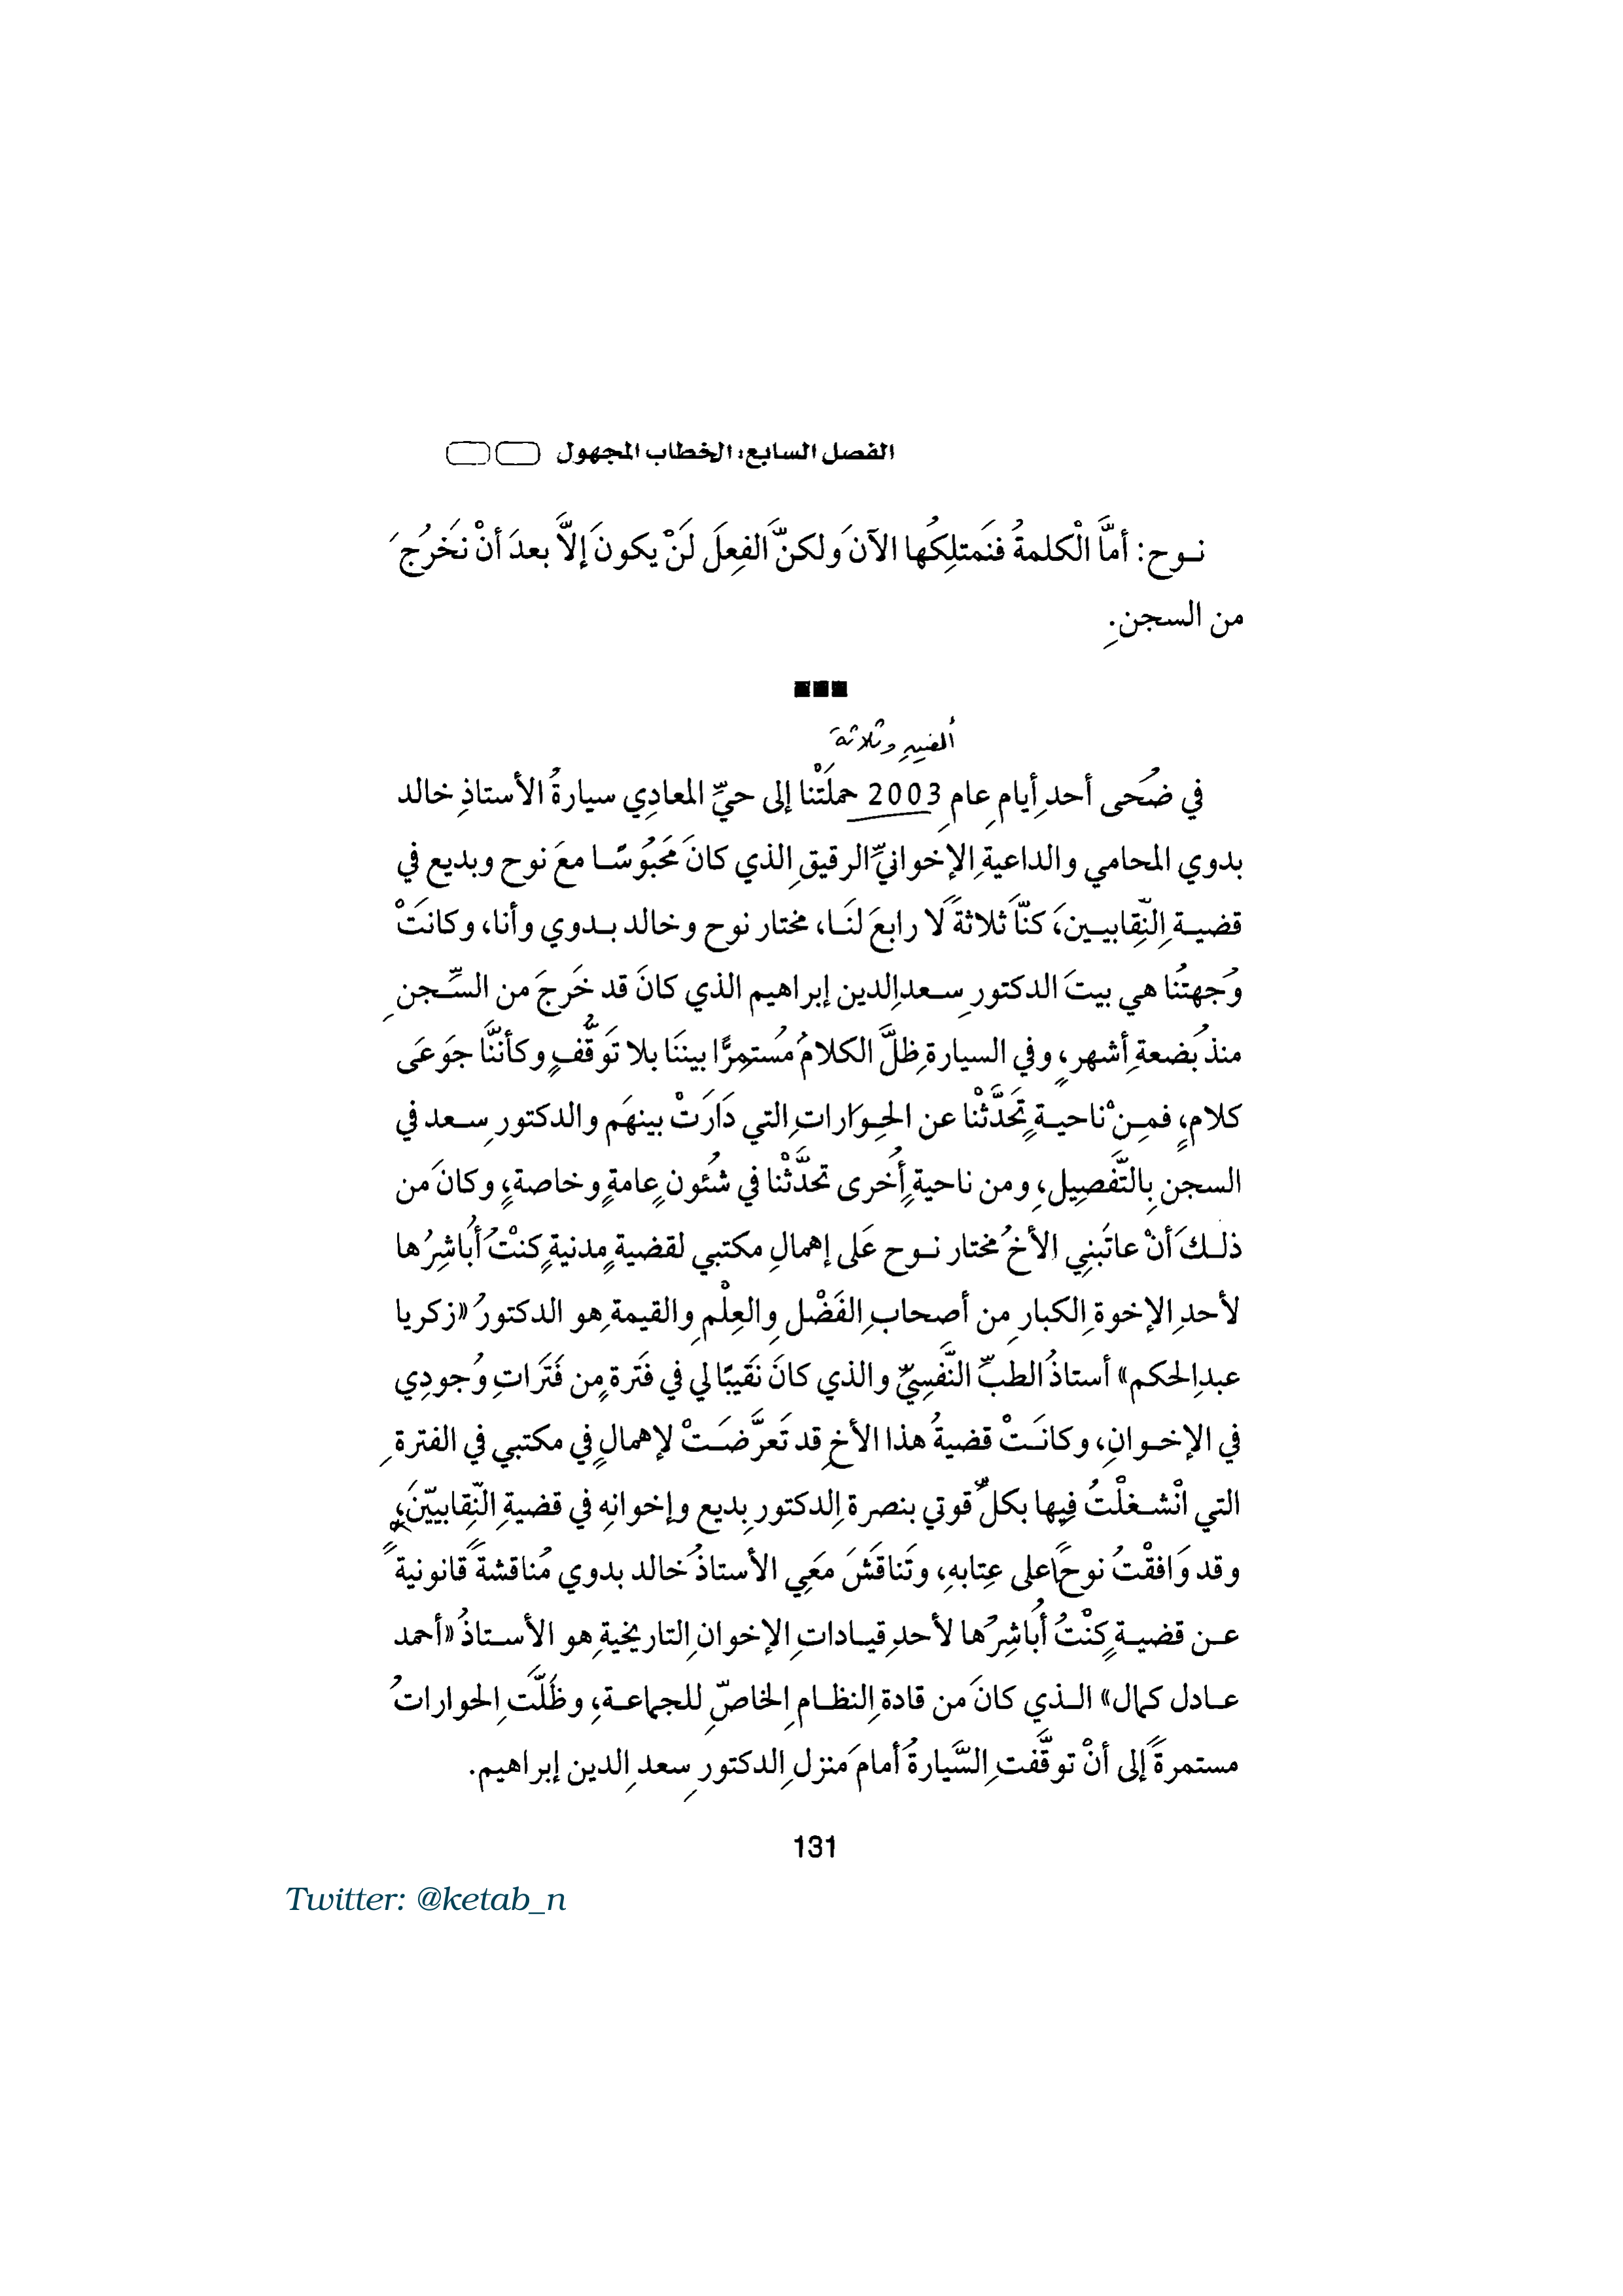 الفصل السابع: الخطاب المجهول
نـوح: أمَّا الْكلمةُ فنَمتلِكُها الآنَ ولكنَّ الفِعلَ لَنْ يكونَ إلَّا بعدَ أنْ نَخرُجَ
من السجنِ.
ألفين وثلاثة
في ضُحَى أحدِ أيامِ عامِ 2003 حملَتْنا إلى حيِّ المعادِي سيارةُ الأستاذِ خالد
بدوي المحامي والداعيةِ الإخوانيِّ الرقيقِ الذي كانَ مَحبُوسًا معَ نوح وبديع في
قضيـةِ النِّقابيـينَ، كنَّا ثلاثةً لَا رابعَ لنَـا، مختار نوح وخالد بـدوي وأنا، وكانَتْ
وُجهتُنا هي بيتَ الدكتورِ سـعدِالدين إبراهيم الذي كانَ قد خَرجَ من السِّـجنِ
منذُ بضعةِ أشهرٍ، وفي السيارةِ ظلَّ الكلامُ مُستمِرًّا بيننَا بلا تَوقُّفٍ وكأننَّا جَوعَى
كلامٍ، فمِـنْ ناحيـةٍ تَحَدَّثْنا عن الحِـوَاراتِ التي دَارَتْ بينهَم والدكتورِ سـعد في
السجنِ بِالتَّفصِيلِ، ومن ناحيةٍ أُخرى تحَدَّثْنا في شُئونٍ عامةٍ وخاصةٍ، وكانَ من
ذلـكَ أنْ عاتَبنِي الأخُ مختار نـوح عَلى إهمالِ مكتبي لقضيةٍ مدنيةٍ كنتُ أُبَاشِرُها
لأحدِ الإخوةِ الكبارِ من أصحابِ الفَضْلِ والعِلْمِ والقيمةِ هو الدكتورُ «زكريا
عبدِالحكم» أستاذُ الطبِّ النَّفسِيِّ والذي كانَ نَقيبًا لي في فَترةٍ من فَتَراتِ وُجودِي
في الإخـوانِ، وكانَـتْ قضيةُ هذا الأخِ قد تَعرَّضَـتْ لإهمالٍ في مكتبي في الفترةِ
التي انْشـغلْتُ فِيها بكلِّ قوتي بنصرةِ الدكتورِ بديع وإخوانِه في قضيةِ النِّقابيِّينَ،
وقد وَافقْتُ نوحًا على عِتابهِ، وتَناقَشَ مَعَي الأستاذُ خالد بدوي مُناقشةً قانونيةً
عـن قضيـةٍ كنْتُ أُباشِرُها لأحدِ قيـاداتِ الإخوانِ التاريخيةِ هو الأسـتاذُ «أحمد
عـادل كمال» الـذي كانَ من قادةِ النظـامِ الخاصِّ للجماعـةِ، وظَلَّت الحواراتُ
مستمرةً إلى أنْ توقَّفت السَّيارةُ أمامَ منزلِ الدكتورِ سعدِ الدين إبراهيم.
131
Twitter: @ketab_n